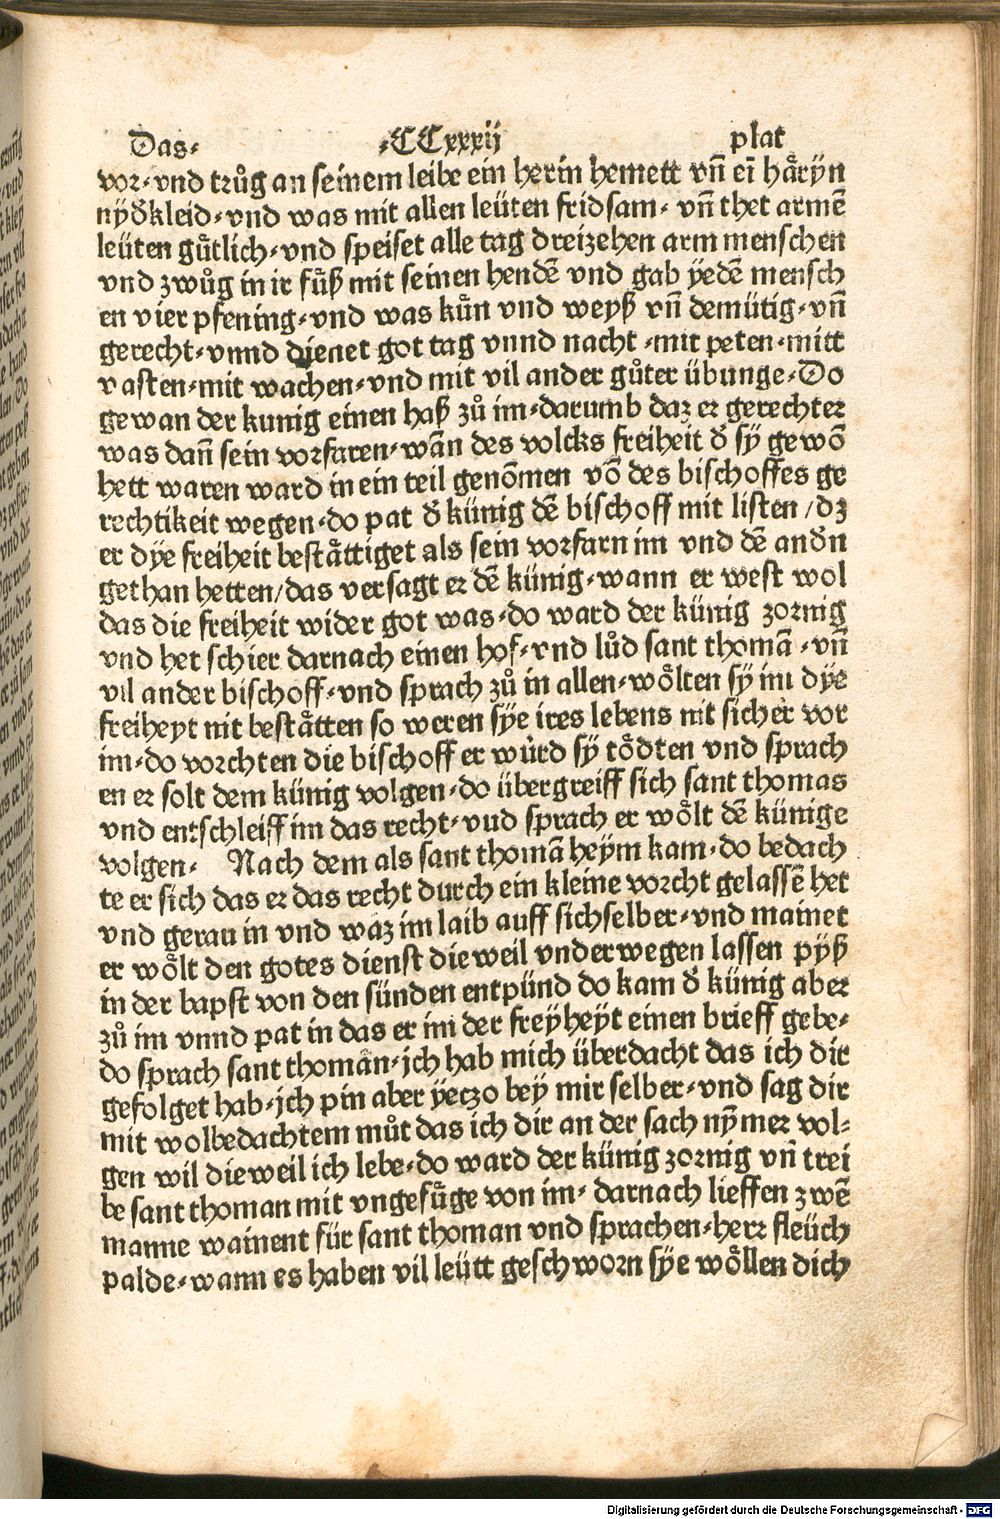 Das· ·CCxxxij plat
vor· vnd trůg an seinem leibe ein herin hemett vñ eī hårÿn
nyd͛kleid· vnd was mit allen leüten fridsam· vñ thet armē
leüten gůtlich· vnd speiset alle tag dreizehen arm menschen
vnd zwůg in ir fůß mit seinen hendē vnd gab ÿedē mensch
en vier pfening· vnd was kůn vnd weyß vñ demütig· vñ
gerecht· vnnd djenet got tag vnnd nacht ·mit peten· mitt
vasten· mit wachen· vnd mit vil ander gůter übunge· Do
gewan der kunig einen haß zů im· darumb daz er gerechter
was dañ sein vorfaren· wān des volcks freiheit d͛ sÿ gewō
hett waren ward in ein teil genōmen vō des bischoffes ge
rechtikeit wegen· do pat d͛ künig dē bischoff mit listen /dz
er dÿe freiheit beståttiget als sein vorfarn im vnd dē and͛n
gethan hetten/das versagt er dē künig· wann er west wol
das die freiheit wider got was· do ward der künig zornig
vnd het schier darnach einen hof· vnd lůd sant thomā · vñ
vil ander bischoff· vnd sprach zů in allen· wőlten sÿ im dÿe
freiheyt nit beståtten so weren sÿe ires lebens nit sicher vor
im· do vorchten die bischoff er würd sÿ tődten vnd sprach
en er solt dem künig volgen· do übergreiff sich sant thomas
vnd entschleiff im das recht· vud sprach er wőlt dē künige
volgen· Nach dem als sant thomā heÿm kam· do bedach
te er sich das er das recht durch ein kleine vorcht gelassē het
vnd gerau in vnd waz im laib auff sichselber· vnd mainet
er wőlt den gotes dienst dieweil vnderwegen lassen pÿß
in der bapst von den sünden entpünd do kam d͛ künig aber
zů im vnnd pat in das er im der freÿheÿt einen brieff gebe·
do sprach sant thoman· jch hab mich überdacht das ich dir
gefolget hab· jch pin aber ÿeczo beÿ mir selber· vnd sag dir
mit wolbedachtem můt das ich dir an der sach nȳmer vol⸗
gen wil dieweil ich lebe· do ward der künig zornig vñ trei
be sant thoman mit vngefůge von im· darnach lieffen zwē
manne wainent für sant thoman vnd sprachen· herr fleüch
palde· wann es haben vil leütt geschworn sÿe wőllen dich
Digitalisierung gefördert durch die Deutsche Forschungsgemeinschaft - DFG